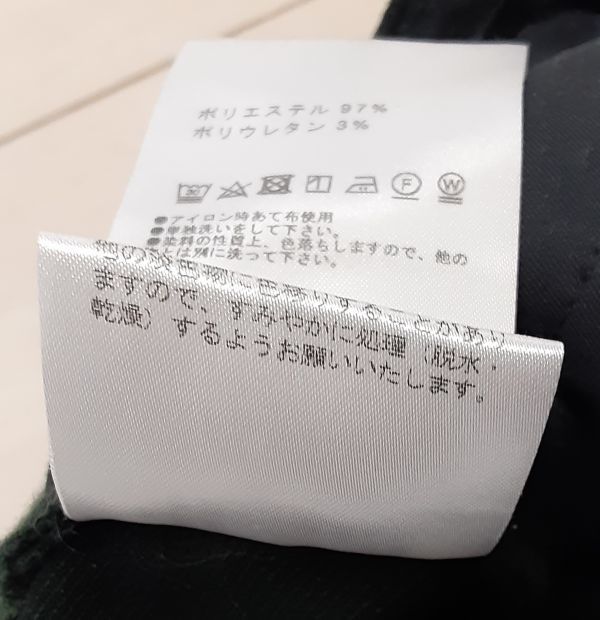 ポリエステル 97%
ポリウレタン 3%
F W
●アイロン時あて布使用
●単独洗いをして下さい。
●染料の性質上、色落ちしますので、他の
ものとは別に洗って下さい。
他の淡色物に色移りすることがあり
ますので、すみやかに処理(脱水・
乾燥)するようお願いいたします。